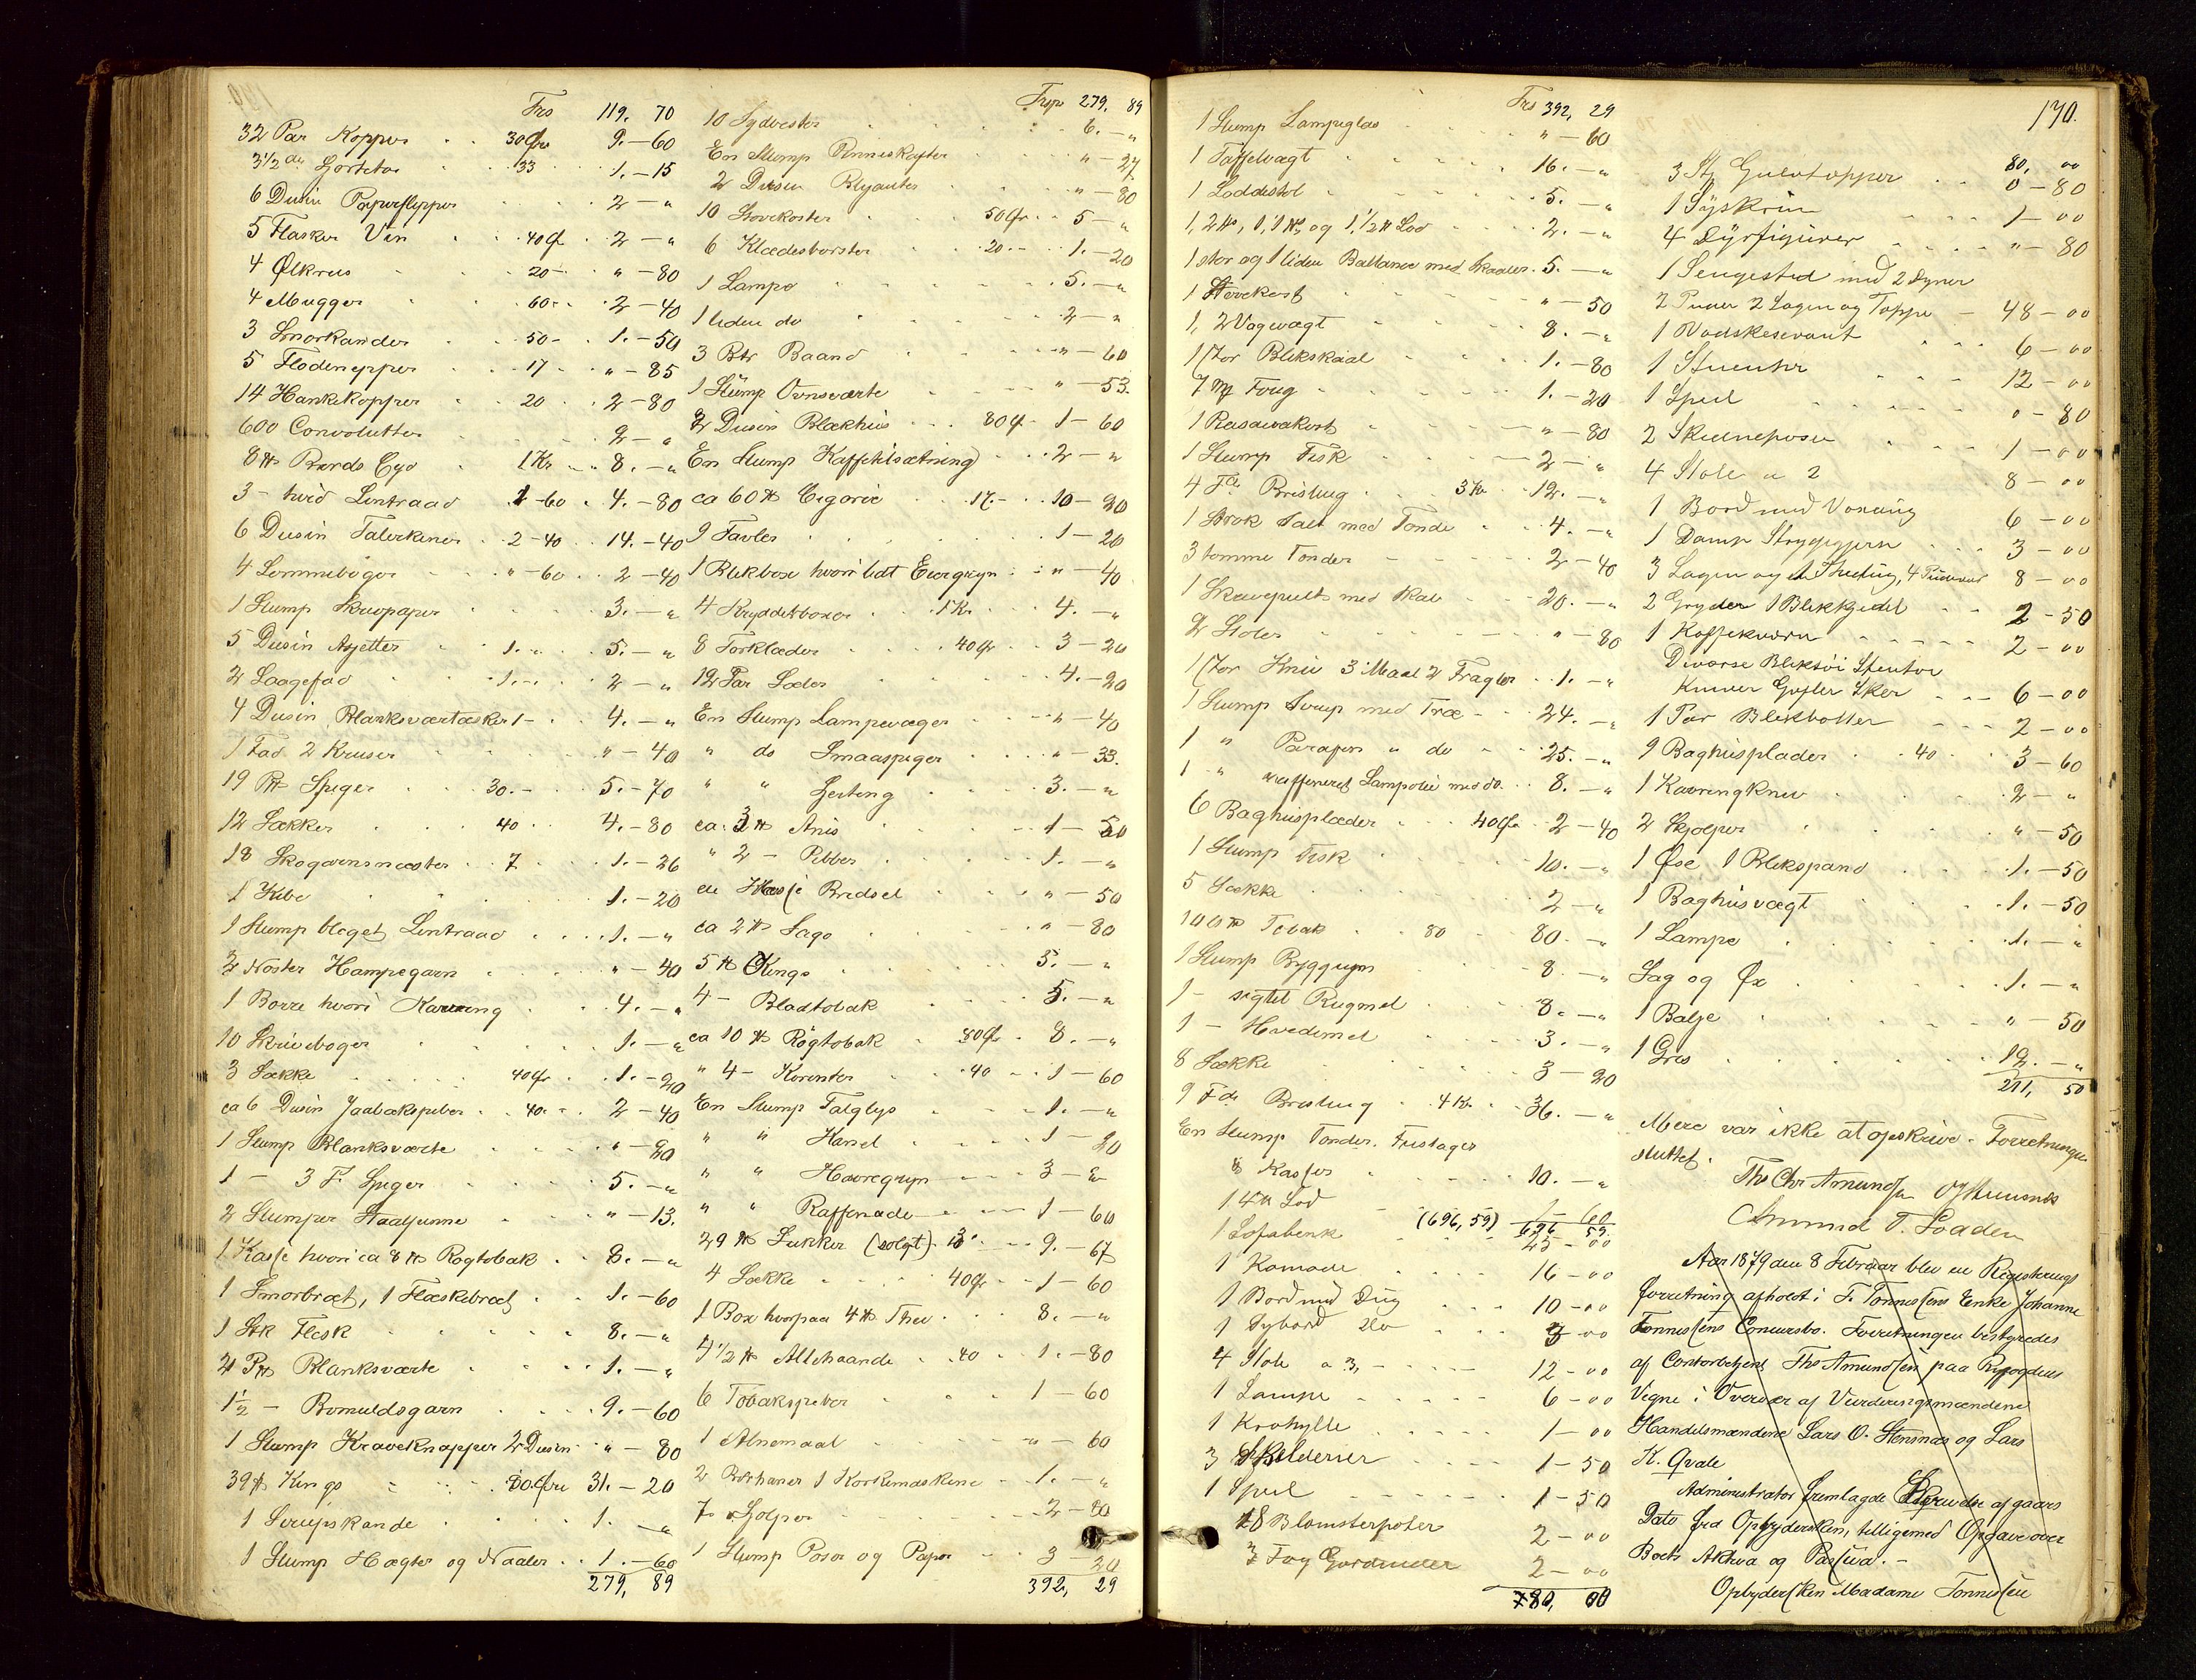 Frs 119. 70
32 Par Kopper . . 30 Øre 9. — 60
3 1/2 ds . . 33 1. — 15
6 Dusin Papirflipper . . 2 — „
5 Flasker Vin . . 40 Ø . 2 — „
4 Ølkrus . . 20 — . „ — 80
4 Mugger . . 60 . . 2 — 40
3 Smørkander . . 50 — . 1. — 50
5 Flødenepper . . 17 . „ — 85
14 Hankekopper . . 20 . . 2 — 80
600 Convolutter . . 2 — „
8 ₶ . . 1 Kr . . 8. — „
3 — hvid Lintraad . 1 — 60 . 4. — 80
6 Dusin Talerkener . . 2 — 40 . . 14. — 40
4 Lommebøger . . „ — 60 . . 2 — 40
1 Slump Skrivpapir . . 3. — „
5 Dusin Asjetter . . 1. „ . . 5. — „
2 Laagefad . . 1. — . 2 — „
4 Dusin Blanksværtæsker 1 — . . 4. — „
1 Fad 2 Kruser . . „ — 40
19 P₶ Spiger . . 30. — . 5. — 70
12 Sækker . . 40 . . 4. — 80
18 Skogarnsnøster . . 7 . . 1. — 26
1 Kibe . . 1. — 20
1 Slump bleget Lintraad . . 1. — „
2 Nøster Hampegarn . . „ — 40
1 Børre hvori Kavring . . 4. — „
10 Skrivebøger . . 1. — „
3 Sække . . 40 Ør . . 1. — 20
ca 6 Dusin Jaabakspiber . . 40 . . 2 — 40
1 Slump Blanksværte . . „ — 80
1 — 3 F. Spiger . . 5. — „
2 Slumper Staalpenne . . „ — 13.
1 Kasse hvori ca 8 ₶ Røgtobak . . 8. — „
1 Smørbræt, 1 Flæskebræt . . 1. — 60
1 Stk Flesk . . 8. — „
4 P₶ Blanksværte . . 1. — „
1 1/2 — Bomuldsgarn . . 9. — 60
1 Slump Kraveknapper 2 Dusin . . „ — 80
39 ₶ Kings . . 80 Øre 31. — 20
1 Sirupskande . . 1. — „
1 Slump Hægter og Naaler . . 1. — 60
279, 89
Trsp 279. 89
10 Sydvester . . 6. — „
En Slump Penneskafter . . „ — 27
2 Dusin Blyanter . . „ — 80
10 Sovekoster . . 50 Ør . . 5 — „
6 Klædesbørster . . 20. — . 1. — 20
1 Lampe . . 5. — „
1 liden do . . 2 — „
3 Btr Baand . . „ — 60
1 Slump Ovnsværte . . „ — 53.
2 Dusin Blækhus . . 80 Ø . 1 — 60
En Slump Kaffetilsætning . . 2 — „
ca 60 ₶ Cigorie . . 17. — . . 10 — 20
9 Tavler . . 1 — 20
1 Blikbox hvori lidt . . „ — 40
4 Krydderboxer . . 1 Kr . . 4. — „
8 Forklæder . . 40 Ør . . 3 — 20
12 Par Læder . . 4. — 20
En Slump Lampevæger . . „ — 40
„ do Smaaspiger . . „ — 33.
„ „ . . 3. — „
ca. 3 ₶ Anis . . 1 — 50
„ 2 — Pebber . . 1. — „
en Kasse . . „ — 50
ca 2 ₶ Sago . . „ — 80
5 ₶ Kings . . 5. — „
4 — Bladtobak . . 5. — „
ca 10 ₶ Røgtobak . . 80 Ør . 8. — „
„ 4 — Korinter . . 40 . . 1 — 60
En Slump Talglys . . 1. — „
„ „ Kanel . . 1 — 20
„ „ Havregryn . . 3 — „
„ „ Raffenade . . 1 — 60
29 ₶ Sukker (solgt) . . 9. — 67
4 Sække . . 40 Ør . . 1 — 60
1 Box hvorpaa 4 ₶ Thee . . 8. — „
4 1/2 ₶ Allehaande . . 40 . . 1. — 80
6 Tobakspiber . . 1 — 60
1 Alnemaal . . „ — 60
2 1 Korkemaskine . . 1. — „
7 . . 2 — 80
1 Slump Poser og Papir . . 3 — 20
392, 29
Frs 392, 29
1 Slump Lampeglas . . „ — 60
1 Taffelvægt . . 16. — „
1 Loddestol . . 5. — „
1, 2 ₶, 1, 1 ₶, og 1, 1/2 ₶ Lod . . 2. — „
1 stor og 1 liden Ballance med Skaaler . 5. — „
1 . . „ — 50
1, 2 Vogvægt . . 8. — „
1 stor Blikskaal . . 1. — 80
7 Toug . . 1. — 20
1 . . „ — 80
1 Slump Fisk . . 2 — „
4 Fd Brisling . . 3 Kr . . 12. — „
1 Strok Salt med Tønde . . 4. — „
3 tomme Tønder . . 2 — 40
1 Skrivepult med Skab . . 20. — „
2 Stoler . . „ — 80
1 stor Kniv 3 Maal 2 Tragter . . 1. — „
1 Slump Sirup med Træ . . 24. — „
1 „ Parafin „ do . . 25. — „
1 „ raffineret Lampolie med do . . 8. — „
6 Baghusplader . . 40 Ør . 2 — 40
1 Slump Fisk . . 10. — „
5 Sække . . 2 — „
100 ₶ Tobak . . 80 . . 80. — „
1 Slump Byggryn . . 8. — „
1 — sigtet Rugmel . . 8. — „
1 — Hvedemel . . 3. — „
8 Sække . . 3 — 20
9 Fdr Brisling . . 4 Kr . . 36. — „
En Slump Tønder. Fustager
& Kasser . . 10. — „
1 4 ₶ Lod . . 1 — 60
(696, 59) 696 59
1 Sofabenk . . 25 — 00
1 Komode . . 16 — 00
1 Bord med Dug . . 10 — 00
1 Sybord do . . 3 — 00
4 Stole a 3, — . . 12 — 00
1 Lampe . . 6 — 00
1 Krohylle . . 1 — 00
3 Skilderier . . 1 — 50
1 Speil . . 1 — 50
18 Blomsterpoter . . 2 — 00
3 Fag Gardiner . . 2 — 00
80, 00
190.
80, 00
3 Stk Gulvtepper . . 0 — 80
1 Syskrin . . 1 — 00
4 Dyrfigurer . . „ — 80
1 Sengested med 2 Dyner
2 Puder 2 Lagen og Teppe — 48 — 00
1 Vadskeservant . . 6 — 00
1 Stueuhr . . 12 — 00
1 Speil . . 0 — 80
2 Skindposer . . 1 — 00
4 Stole a 2 . . 8 — 00
1 Bord med Voxdug . . 6 — 00
1 Damp Strygejern . . 3 — 00
3 Lagen og , 4 Pudevar 8 — 00
2 Gryder 1 Blikkjedel . . 2 — 50
1 Kaffekværn . . 2 — 00
Diverse Bliktøi Stentøi
Kniver Gafler Skeer . . 6 — 00
1 Par Blikbøtter . . 2 — 00
9 Baghusplader . . 40 . . 3 — 60
1 Kavringkniv . . 2 — „
2 . . „ — 50
1 Øse, 1 Blikspand . . 1. — 50
1 Baghusvægt . . 1. — 50
1 Lampe . . 1. — „
Sag og Øx . . 1. — „
1 Balje . . „ — 50
1 Gris . . 12. — „
211, 50
Mere var ikke at opskrive. — Forretningen
sluttet.
Ths Chr Amundsen
Amund T. Loaden
Aar 1879 den 8 Februar blev en Registrerings
forretning afholdt i F. Tønnesens Enke Johanne
Tønnesens Concursbo. Forretningen bestyredes
af Contorbetjent Ths Amundsen paa Byfogdens
Vegne i Overvær af Vurderingsmændene
Handelsmændene Lars O. Stensnæs og Lars
K. Qvale
Administrator fremlagde Skrivelse af gaars
Dato fra Opbydersken, tilligemed Opgave over
Boets Aktiva og Passiva. —
Opbydersken Madame Tønnesen